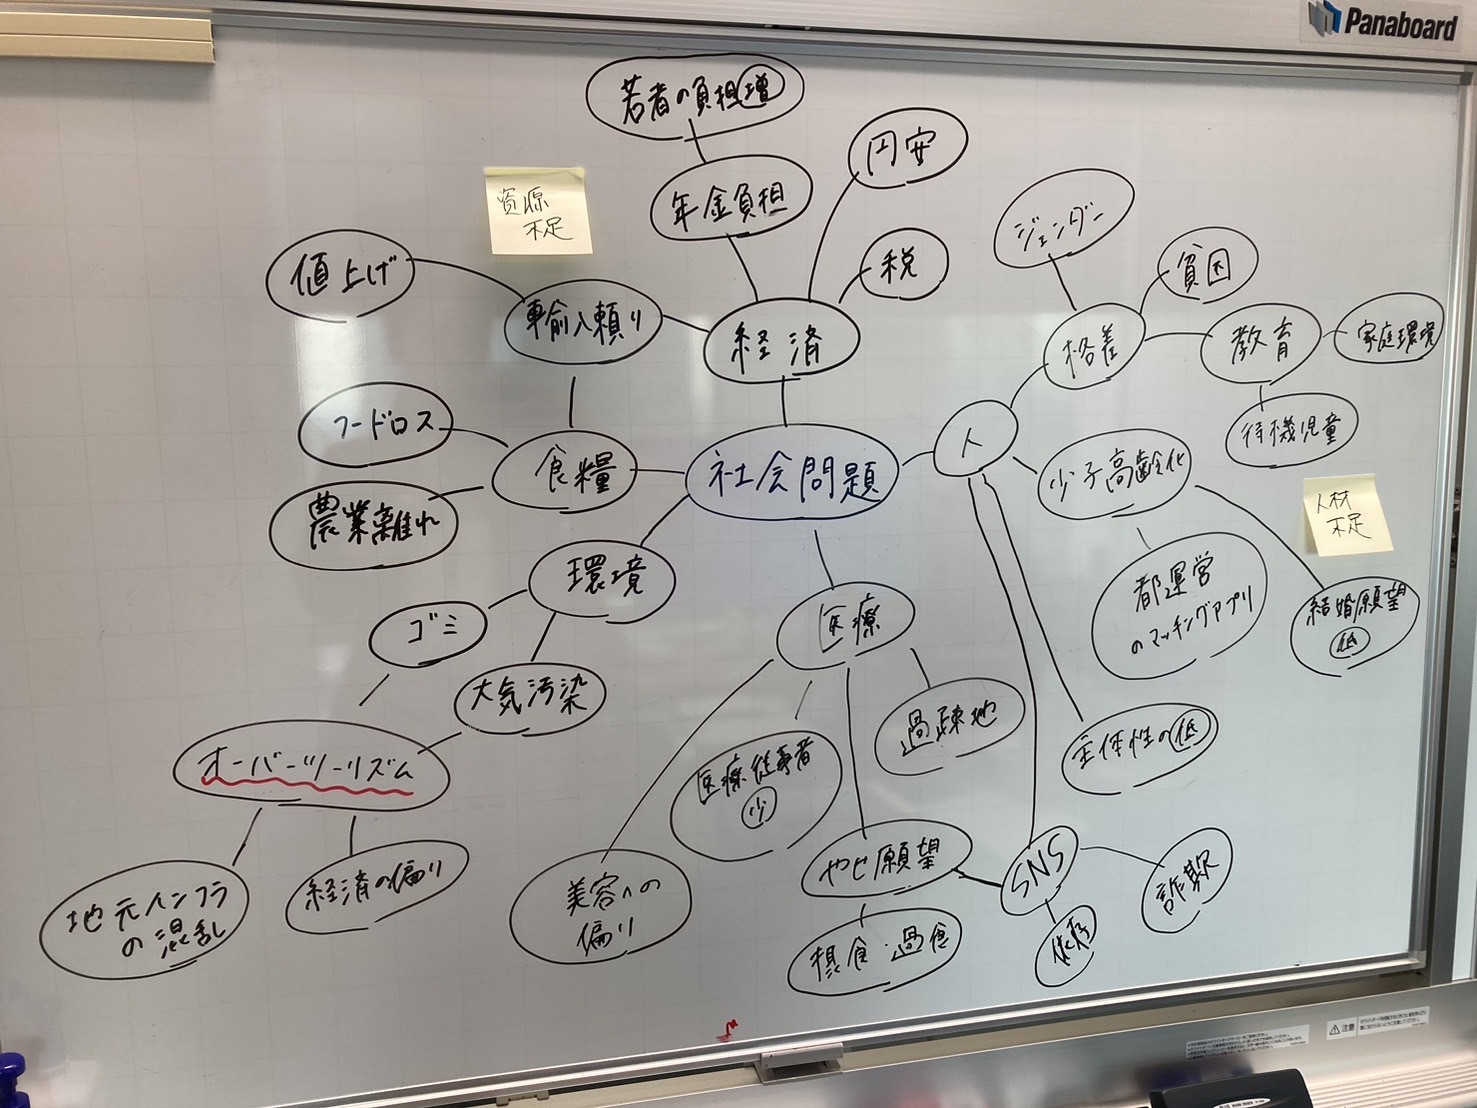 Panaboard
若者の負担増
円安
年金負担
資源
不足
ジェンダー
税
貧困
値上げ
輸入頼り
経済
格差
教育
家庭環境
フードロス
待機児童
人
食糧
社会問題
少子高齢化
農業離れ
人材
不足
環境
都運営
のマッチングアプリ
結婚願望
低
ゴミ
医療
大気汚染
過疎地
主体性の低
オーバーツーリズム
医療従事者
少
やせ願望
SNS
詐欺
経済の偏り
地元インフラ
の混乱
美容への
偏り
摂食 過食
依存
注意